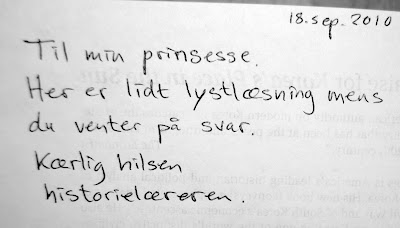 18. sep. 2010
Til min prinsesse.
Her er lidt lystlæsning mens
du venter på svar.
Kærlig hilsen
historielæreren.